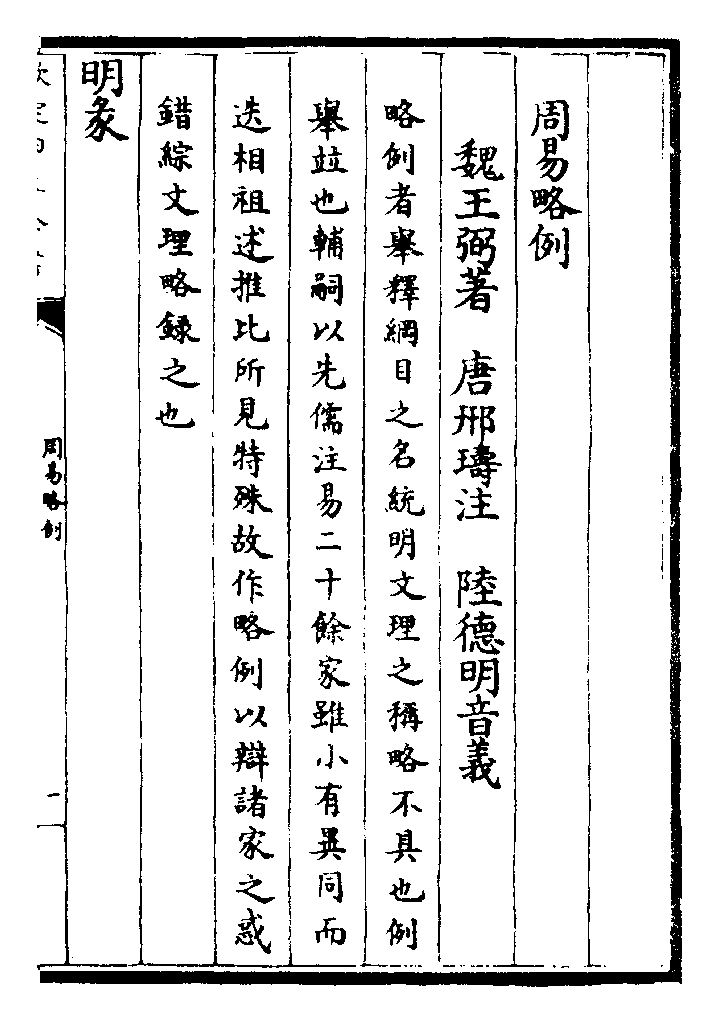 周易略例
魏王弼著　唐邢璹注　陸德明音義
略例者舉釋綱目之名統明文理之稱略不具也例
舉並也輔嗣以先儒注易二十餘家雖小有異同而
迭相祖述推比所見特殊故作略例以辯諸家之惑
錯綜文理略録之也
明彖
周易略例
一